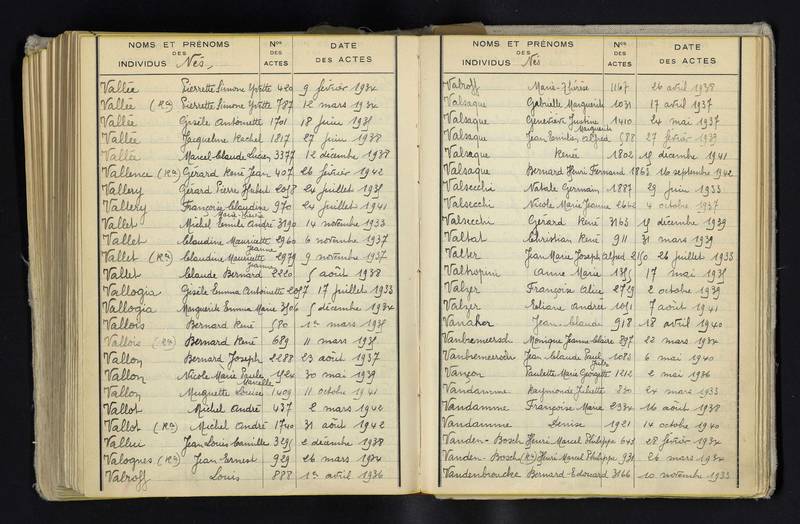 NOMS ET PRÉNOMS
DES
INDIVIDUS Nés
Nos
DES
ACTES
DATE
DES ACTES
Vallée Pierrette Simone Yvette 420 9 février 1934
Vallée (Ra) Pierrette Simone Yvette 787 12 mars 1934
Vallée Gisèle Antoinette 1701 18 juin 1935
Vallée Jacqueline Rachel 1817 27 juin 1938
Vallée Marcel Claude Lucien 3377 12 décembre 1938
Vallence (Ra) Gérard René Jean 407 26 février 1942
Vallery Gérard Pierre 24 juillet 1935
Vallery Françoise Claudine 970 24 juillet 1941
Marie-Pierre
Vallet Michel Emile André 3190 14 novembre 1933
Vallet Claudine Mauricette 2960 6 novembre 1937
Jeanne
Vallet (Ra) Claudine Mauricette 2979 9 novembre 1937
Jeanne
Vallet Claude Bernard 2220 5 août 1938
Vallogia Gisèle Emma Antoinette 2097 17 juillet 1933
Vallogia Marguerite Emma Marie 3106 5 décembre 1934
Vallois Bernard René 580 1er mars 1935
Vallois (Ra) Bernard René 689 11 mars 1935
Vallon Bernard Joseph 2288 23 août 1937
Vallon Nicole Marie Paule 1424 30 mai 1939
Marcelle
Vallon Muguette Louise 1409 11 octobre 1941
Vallot Michel André 437 2 mars 1942
Vallot (Ra) Michel André 1740 31 août 1942
Jean Louis Camille 3295 2 décembre 1938
Valognes (Ra) Jean Ernest 929 26 mars 1934
Valroff Louis 888 1er avril 1936
NOMS ET PRÉNOMS
DES
INDIVIDUS Nés
Nos
DES
ACTES
DATE
DES ACTES
Valroff Marie-Thérèse 1167 26 avril 1938
Valsaque Gabrielle Marguerite 1031 17 avril 1937
Valsaque Geneviève Justine 1410 24 mai 1937
Marguerite
Valsaque Jean Emilien Alfred 588 27 février 1939
Valsaque René 1802 19 décembre 1941
Valsaque Bernard Henri Fernand 1863 16 septembre 1942
Valsecchi Natale Germain 1887 29 juin 1933
Valsecchi Nicole Marie Jeanne 2642 4 octobre 1937
Valsecchi Gérard René 3163 19 décembre 1939
Valtat Christian René 911 31 mars 1939
Valter Jean Marie Joseph Alfred 2150 26 juillet 1933
Anne Marie 1395 17 mai 1935
Valzer Françoise Alice 2729 2 octobre 1939
Valzer Eliane Andrée 1091 7 août 1941
Jean Claude 918 18 avril 1940
Vanbremeersch Monique Jeanne Claire 897 22 mars 1934
Vanbremeersch Jean Claude Paul 1083 6 mai 1940
Jules
Vançon Paulette Marie Georgette 1212 2 mai 1936
Vandamme Raymonde Juliette 830 24 mars 1933
Vandamme Françoise Marie 2334 16 août 1938
Vandamme Denise 1921 14 octobre 1940
Vanden-Bosch Henri Marcel Philippe 645 28 février 1934
Vanden-Bosch (Ra) Henri Marcel Philippe 931 26 mars 1934
Vandenbroucke Bernard Edouard 3166 10 novembre 1933